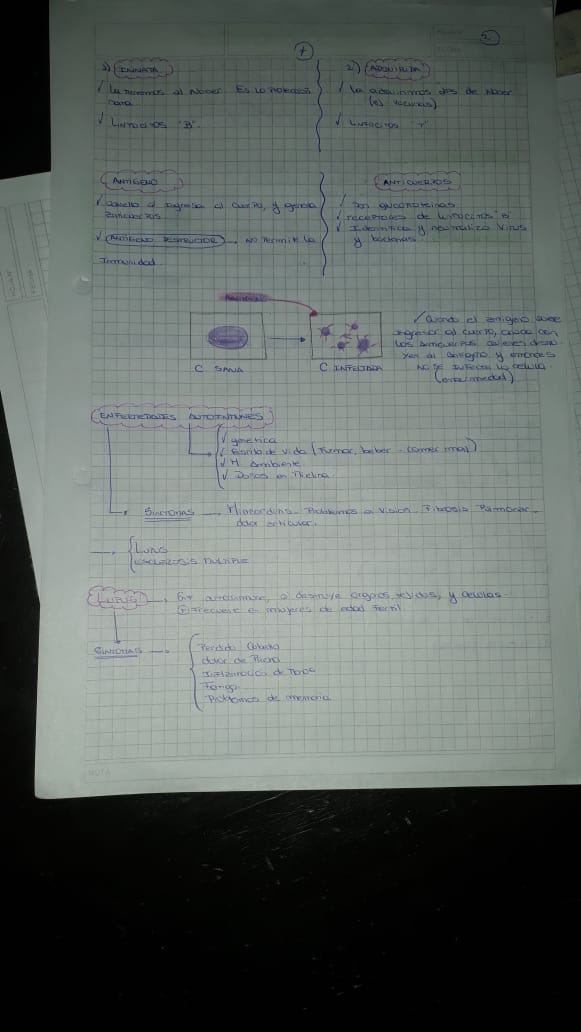 2
1) INNATA
✓ La tenemos al Nacer. Es la protección
✓ Linfocitos "B".
2) ADQUIRIDA
✓ La adquirimos dps de Nacer
(ej vacunas)
✓ Linfocitos "T"
ANTÍGENO
✓ Ingresa al cuerpo, y genera
Anticuerpos
✓ ANTÍGENO DESTRUCTOR NO Permite la
Inmunidad.
ANTICUERPOS
✓ Son glucoproteinas
✓ receptores de Linfocitos B
✓ Identifica y neutraliza Virus
y bacterias.
C SANA
C INFECTADA
✓ Cuando el antígeno quiere
ingresar al cuerpo, choca con
Los anticuerpos
al antígeno y entonces
NO SE INFECTA LA celula
(enfermedad)
ENFERMEDADES AUTOINMUNES
✓ genetica
✓ Estilo de Vida (Fumar, beber - comer mal)
✓ M Ambiente
✓ en
SINTOMAS Problemas a Vision - Fibrosis Pulmonar -
dolor articular.
LUPUS
ESCLEROSIS MULTIPLE
LUPUS Enf autoinmune, destruye organos, tejidos, y celulas
Frecuente en mujeres de edad Fertil
SINTOMAS
Perdida Cabello
dolor de
Inflamación de
Fatiga
Problemas de memoria
NOTA